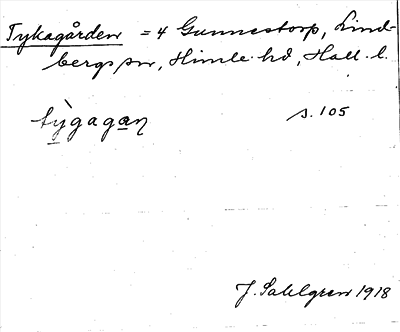 Tykagården = 4 Gunnestorp, Lind-
bergs sn, Himle hd, Hall. l.
tỳgagan s. 105
J. Sahlgren 1918